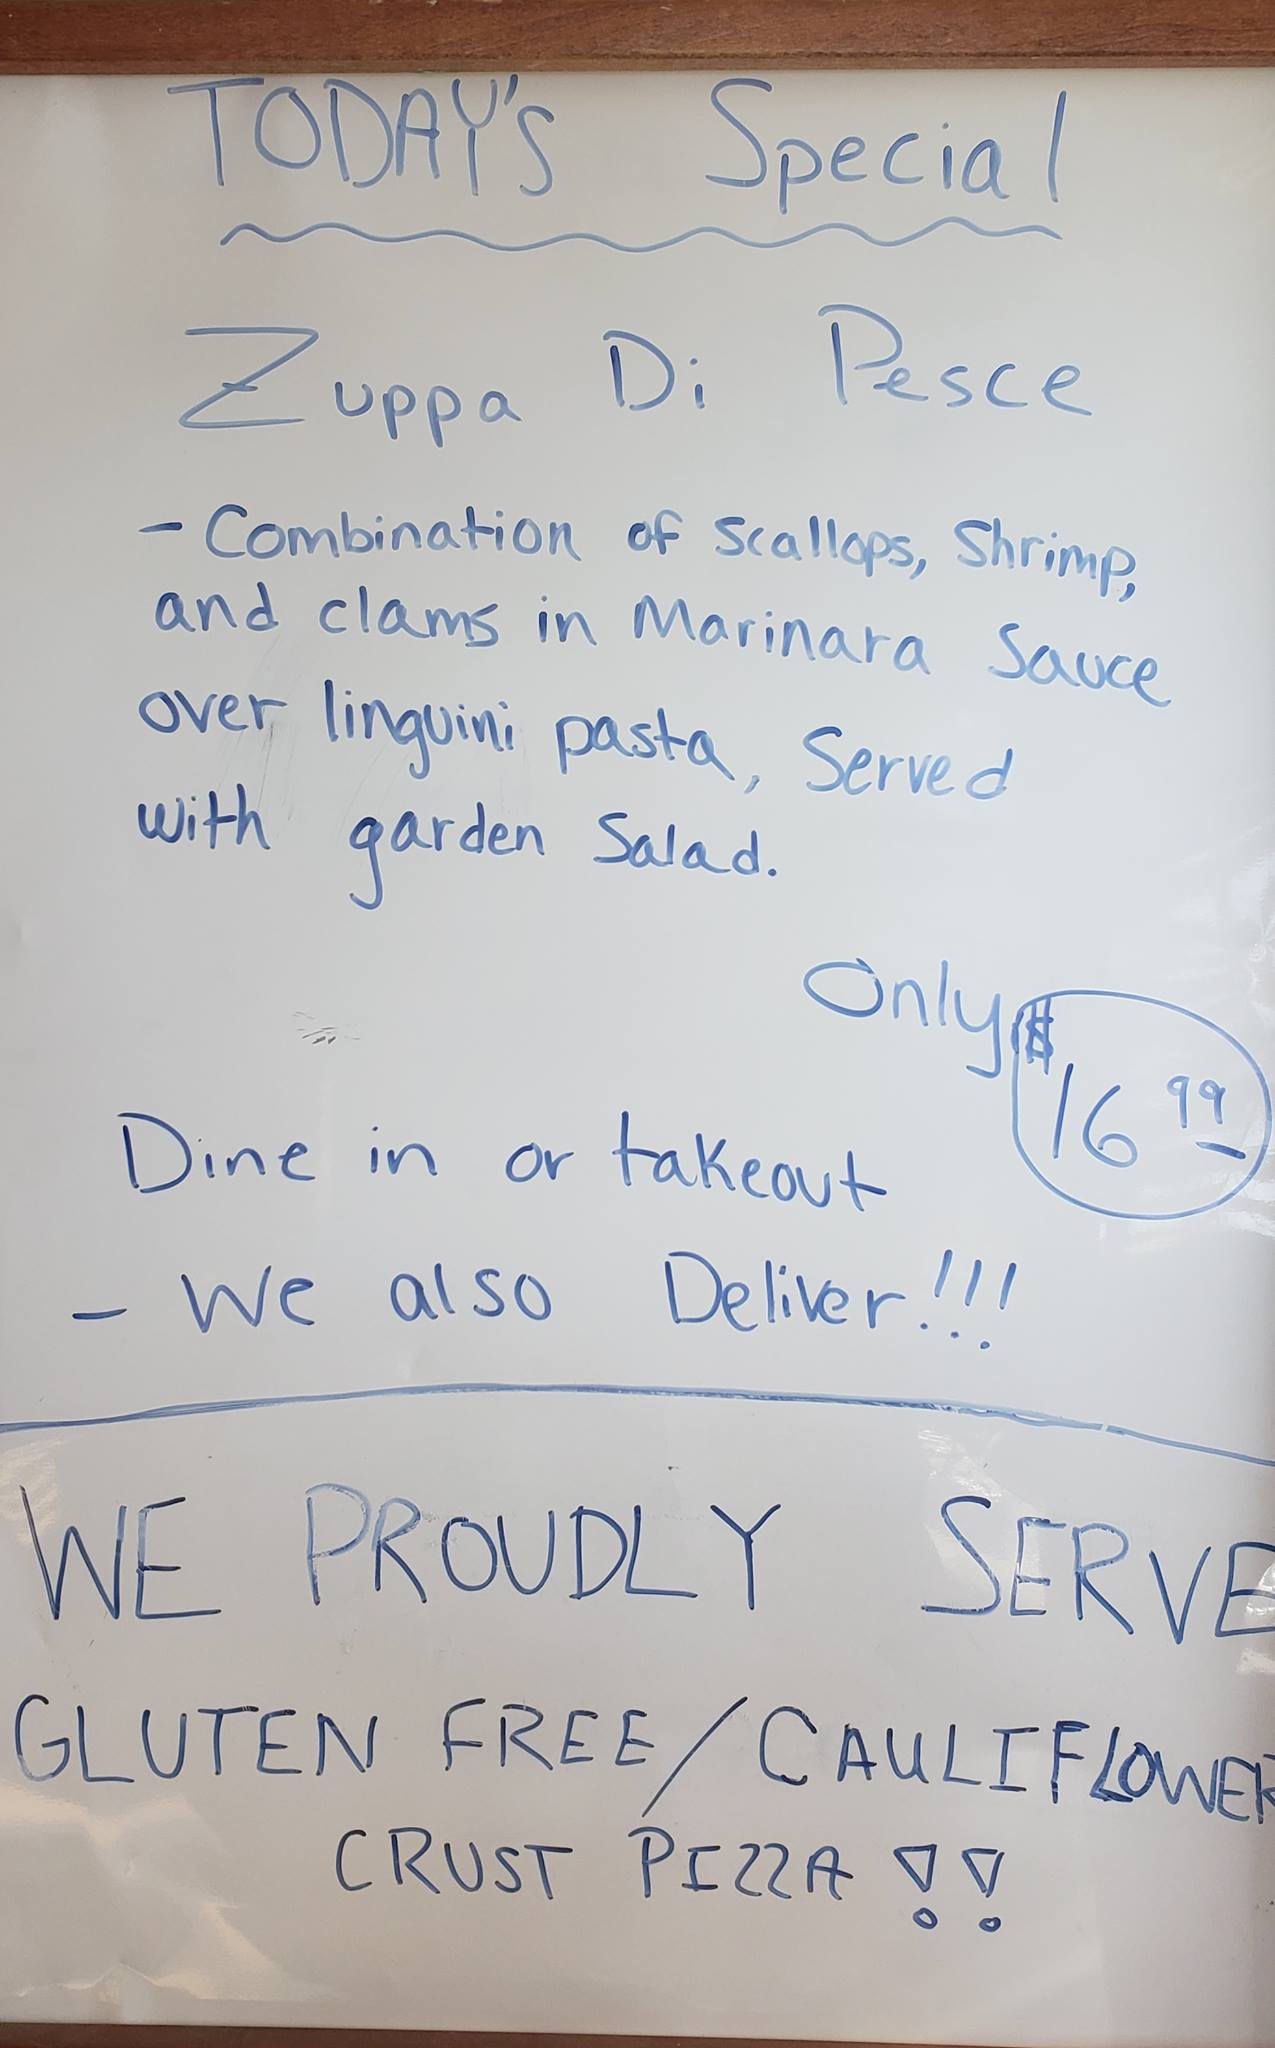 TODAY's Special
Zuppa Di Pesce
- Combination of scallops, Shrimp,
and clams in Marinara Sauce
over linguini pasta, Served
with garden Salad.
Only $16 99
Dine in or takeout
- We also Deliver!!!
WE PROUDLY SERVE
GLUTEN FREE/CAULIFLOWER
CRUST PIZZA !!